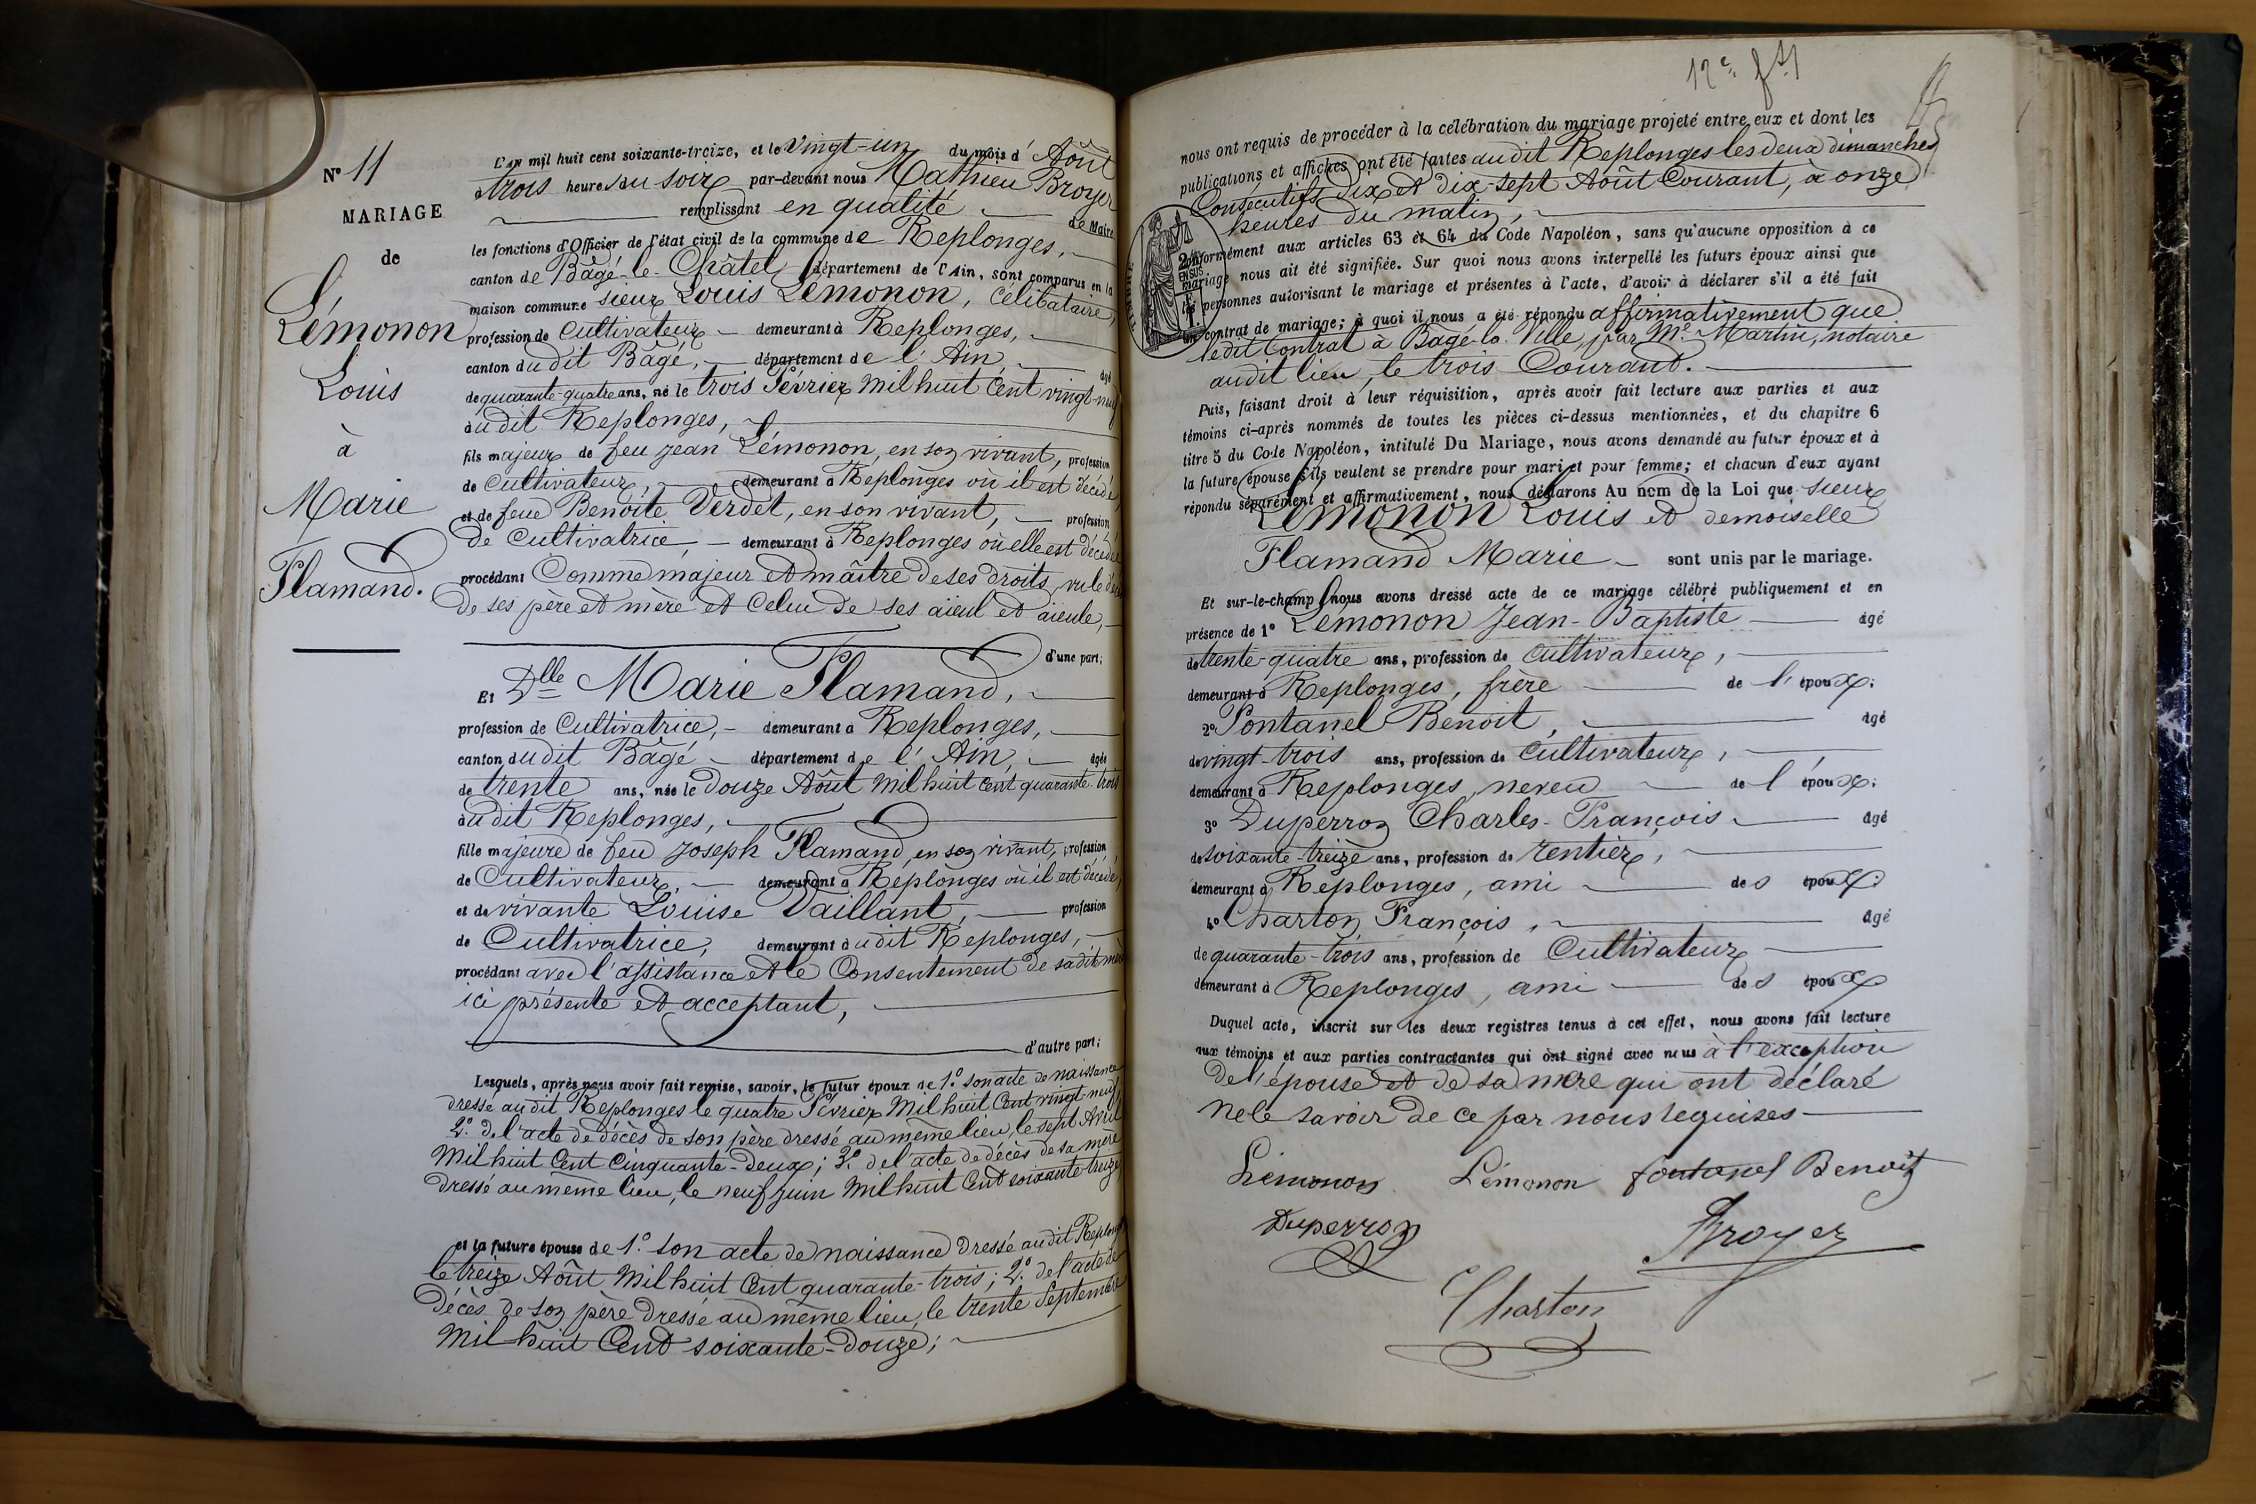 N° 11
MARIAGE
de
Lémonon
Louis
à
Marie
Flamand.
L'an mil huit cent soixante-treize, et le Vingt-un du mois d' Août
trois heures du soir par-devant nous Mathieu Broyer
remplissant en qualité de Maire
les fonctions d'Officier de l'état civil de la commune de Replonges,
canton de Bâgé-le-Châtel, département de l'Ain, sont comparus en la
maison commune sieur Louis Lémonon, célibataire,
profession de Cultivateur demeurant à Replonges,
canton dudit Bâgé, département de l'Ain, âgé
de quarante-quatre ans, né le trois Février mil huit Cent vingt-neuf
audit Replonges,
fils majeur de feu Jean Lémonon, en son vivant, profession
de Cultivateur, demeurant à Replonges où il est décédé,
et de feue Benoîte Verdet, en son vivant, profession
de Cultivatrice, demeurant à Replonges où elle est décédée
procédant Comme majeur et maître de ses droits, vu le décès
de ses père et mère et Celui de ses aïeul et aïeule,
d'une part;
Et Dlle Marie Flamand,
profession de Cultivatrice, demeurant à Replonges,
canton dudit Bâgé département de l'Ain, âgée
de trente ans, née le douze Août Mil huit Cent quarante-trois
audit Replonges,
fille majeure de feu Joseph Flamand, en son vivant, profession
de Cultivateur, demeurant à Replonges où il est décédé,
et de vivante Louise Vaillant, profession
de Cultivatrice, demeurant audit Replonges,
procédant avec l'assistance et le Consentement de sadite mère
ici présente et acceptant,
d'autre part;
Lesquels, après nous avoir fait remise, savoir, le futur époux de 1° son acte de naissance
dressé audit Replonges le quatre Février Mil huit Cent vingt-neuf
2° de l'acte de décès de son père dressé au même lieu, le sept Avril
Mil huit Cent Cinquante-deux; 3° de l'acte de décès de sa mère
dressé au même lieu, le neuf juin Mil huit Cent soixante-treize
et la future épouse de 1° son acte de naissance dressé audit Replonges
le treize Août Mil huit Cent quarante-trois; 2° de l'acte de
décès de son père dressé au même lieu, le trente Septembre
Mil huit Cent soixante-douze;
nous ont requis de procéder à la célébration du mariage projeté entre eux et dont les
publications et affiches ont été faites audit Replonges les deux dimanches
Consécutifs Dix et Dix-sept Août Courant, à onze
heures du matin,
conformément aux articles 63 et 64 du Code Napoléon, sans qu'aucune opposition à ce
mariage nous ait été signifiée. Sur quoi nous avons interpellé les futurs époux ainsi que
les personnes autorisant le mariage et présentes à l'acte, d'avoir à déclarer s'il a été fait
un contrat de mariage; à quoi il nous a été répondu affirmativement que
ledit Contrat à Bagé-la-Ville, par Me Martin, notaire
audit lieu, le trois Courant.
Puis, faisant droit à leur réquisition, après avoir fait lecture aux parties et aux
témoins ci-après nommés de toutes les pièces ci-dessus mentionnées, et du chapitre 6
titre 5 du Code Napoléon, intitulé Du Mariage, nous avons demandé au futur époux et à
la future épouse s'ils veulent se prendre pour mari et pour femme; et chacun d'eux ayant
répondu séparément et affirmativement, nous déclarons Au nom de la Loi que sieur
Lémonon Louis et demoiselle
Flamand Marie sont unis par le mariage.
Et sur-le-champ nous avons dressé acte de ce mariage célébré publiquement et en
présence de 1° Lémonon Jean-Baptiste âgé
de trente-quatre ans, profession de Cultivateur,
demeurant à Replonges, frère de l'époux;
2° Fontanel Benoit, âgé
de vingt-trois ans, profession de Cultivateur,
demeurant à Replonges, neveu de l'époux;
3° Duperron Charles-François âgé
de soixante-treize ans, profession de rentier,
demeurant à Replonges, ami des époux;
4° Charton François, âgé
de quarante-trois ans, profession de Cultivateur
demeurant à Replonges, ami des époux
Duquel acte, inscrit sur les deux registres tenus à cet effet, nous avons fait lecture
aux témoins et aux parties contractantes qui ont signé avec nous à l'exception
de l'épouse et de sa mère qui ont déclaré
ne le savoir de ce par nous requises
Lémonon Lémonon fontanel Benoit
Duperron Broyer
Charton